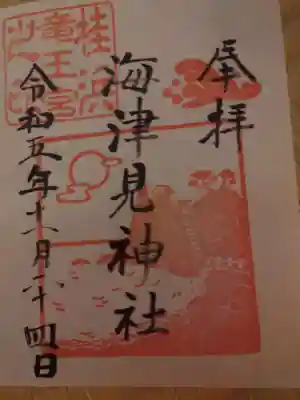 奉拝
海津見神社
令和五年十一月二十四日
桂浜
竜王宮
之印